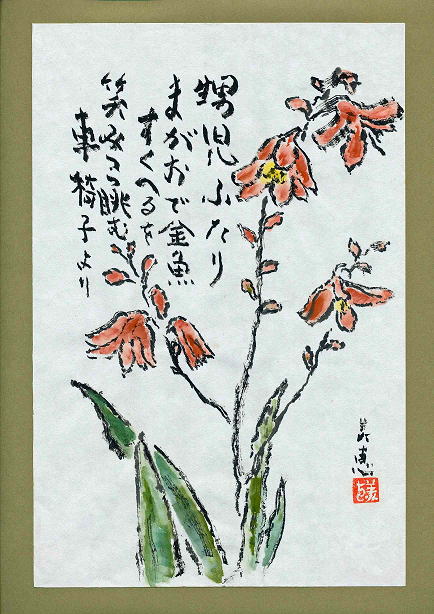 甥児ふたり
まがおで金魚
すくへるを
笑みつつ眺む
車椅子より
美恵